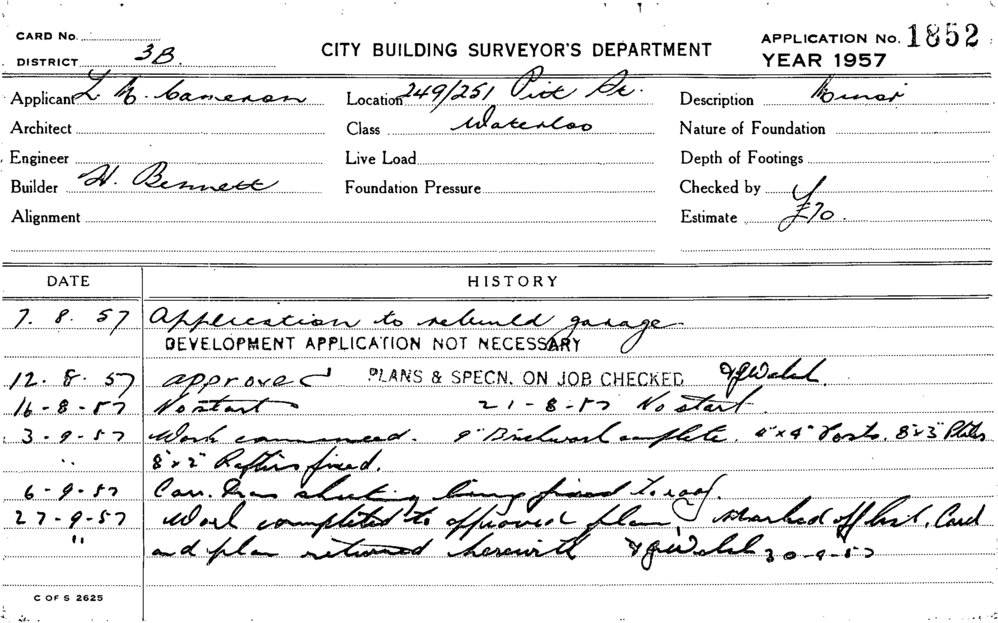 CARD No.
DISTRICT 3B.
CITY BUILDING SURVEYOR'S DEPARTMENT
APPLICATION No. 1852
YEAR 1957
Applicant L. N. Cameron
Location 249/251 Pitt St.
Description Minor
Architect
Class Waterloo
Nature of Foundation
Engineer
Live Load
Depth of Footings
Builder H. Bennett
Foundation Pressure
Checked by
Alignment
Estimate £70.
DATE
HISTORY
7. 8. 57 Application to rebuild garage.
DEVELOPMENT APPLICATION NOT NECESSARY
12. 8. 57 approved PLANS & SPECN. ON JOB CHECKED
16-8-57 No start 21-8-57 No start.
3-9-57 Work commenced. 9" Brickwork complete. 4"x4" Posts. 8"x3" Plates
" 8"x2" Rafters fixed.
6-9-57 Corr. Iron sheeting being fixed to roof.
27-9-57 Work completed to approved plan, marked off list, Card
" and plan returned herewith 30-9-57
C OF S 2625